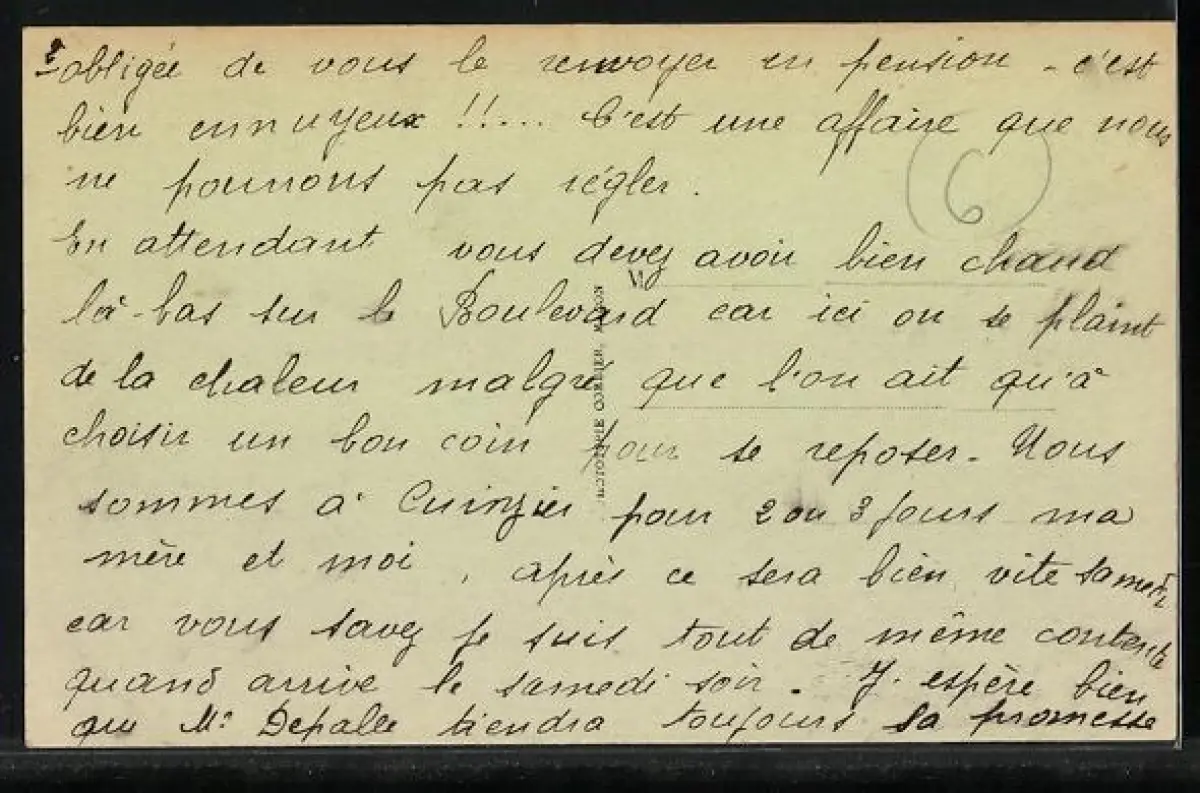 2 obligée de vous le renvoyer en pension - c'est
bien ennuyeux !!... C'est une affaire que nous
ne pourrons pas régler.
(6)
En attendant vous devez avoir bien chaud
là-bas sur le Boulevard car ici on se plaint
de la chaleur malgré que l'on ait qu'à
choisir un bon coin pour se reposer. Nous
sommes à Cuinzier pour 2 ou 3 jours ma
mère et moi, après ce sera bien vite samedi
car vous savez je suis tout de même contente
quand arrive le samedi soir. J'espère bien
que Mr Depalle tiendra toujours sa promesse
COMBIER, MACON